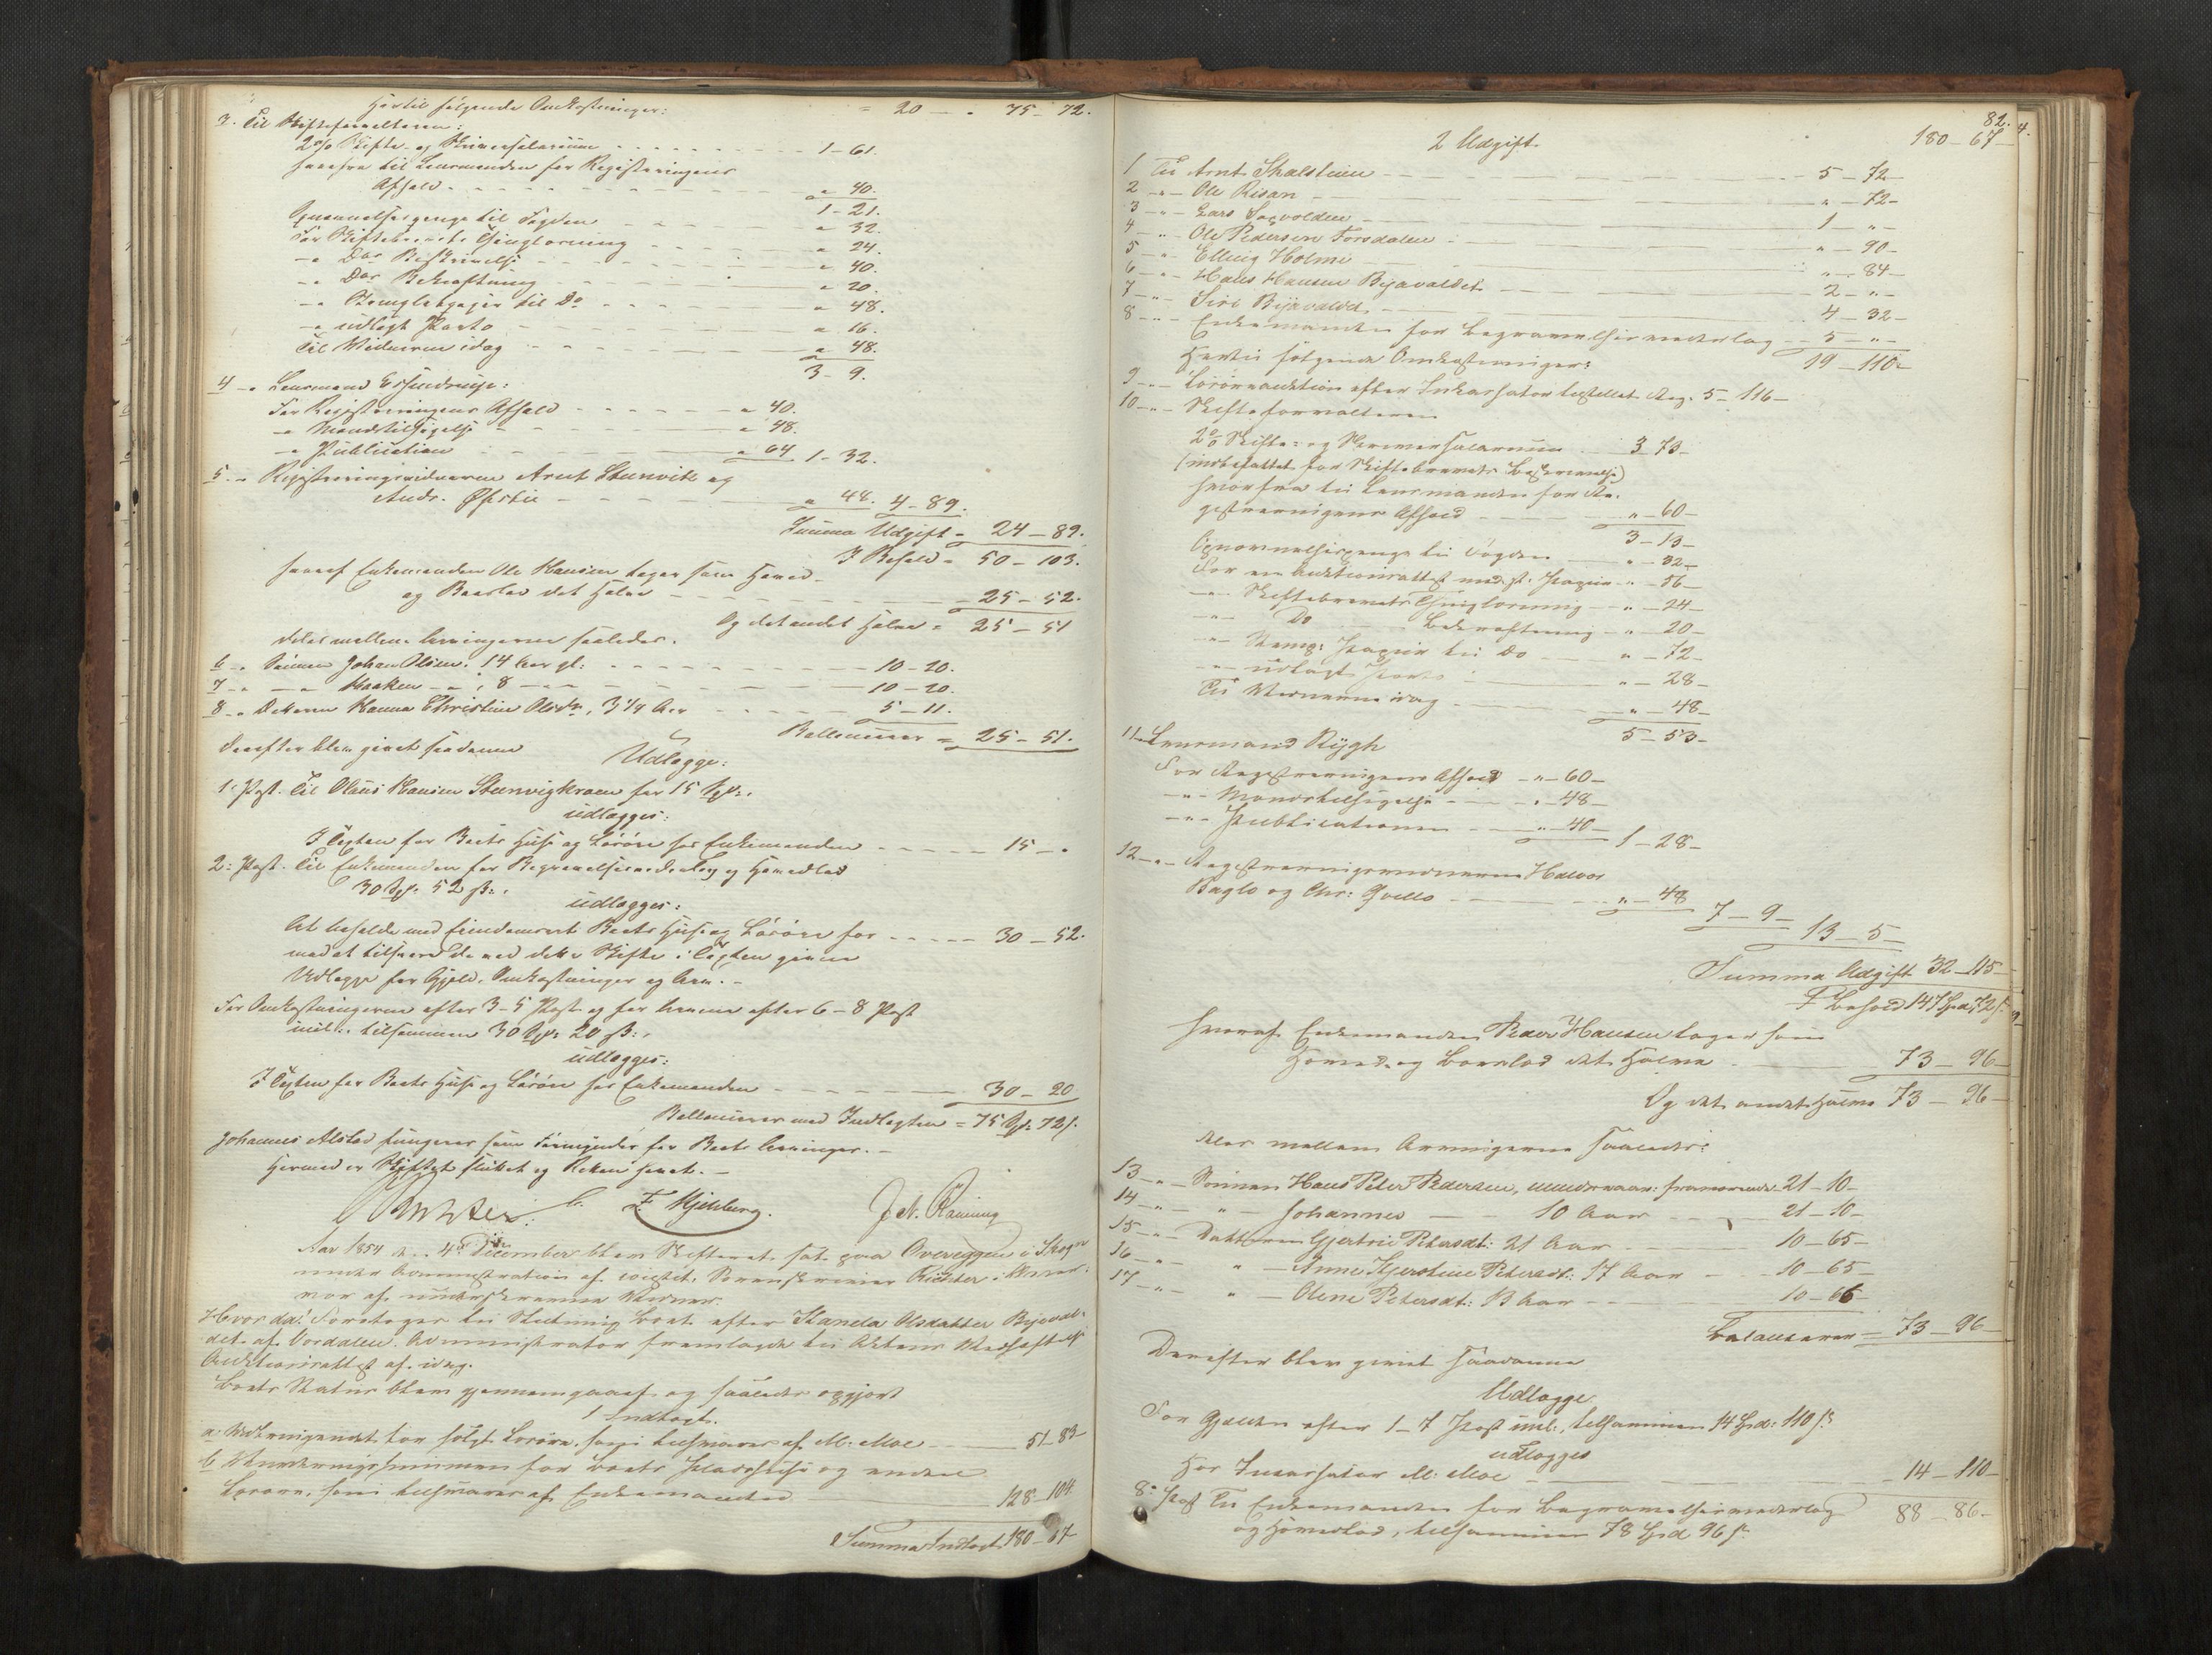 Hertil følgende Omkostninger: = 20 — „ 75 – 72.
3. Til Skifteforvalteren:
2% Skifte- og Skriversalarium - - - 1 – 61.
herfra til Lensmanden for Registreringens
Afhold - - - „ 40.
1 – 21.
Opnævnelsespenge til Fogden - - - „ 32.
For Skiftebrevets Thinglæsning - - - „ 24.
–„ Dos Beskrivelse - - - „ 40.
–„ Dos Bekræftning - - - „ 20.
–„ Stempletpapir til Do - - - „ 48.
–„ udlagt Porto - - - „ 16.
Til Vidnerne idag - - - „ 48.
3 – 9.
4 –„ Lensmand
For Registreringens Afhold - - - „ 40.
–„ Mandstilsigelse - - - „ 48.
–„ Publication - - - „ 64 1 – 32.
5. –„ Registreringsvidnerne Arnt Stenvik og
Andr. Øfstie - - - „ 48. 4 – 89.
Summa Udgift = 24 – 89.
I Behold = 50 – 103.
hvoraf Enkemanden Ole Hansen tager som Hoved-
og Boeslod det Halve - - - 25 – 52.
Og det andet Halve = 25 – 51
deles mellem Arvingerne saaledes.
6 –„ Sønnen Johan Olsen, 14 Aar gl: - - - 10 – 20.
7 –„ –„ Haaken –„ , 8 –„– - - - 10 – 20.
8 –„ Datteren Hanna Christine Olsdr, 3 1/4 Aar - - - 5 – 11.
Ballancerer = 25 – 51.
Derefter blev gjort saadanne
Udlægge:
1. Post. Til Olaus Hansen Stenvigkroen for 15 Spd:,
udlægges:
I Taxten for Boets Huse og Løsøre hos Enkemanden - - - 15 – „
2: Post. Til Enkemanden for Begravelsesvederlag og Hovedlod
30 Spd: 52 ß:,
udlægges:
At beholde med Boets Huse og Løsøre for - - - 30 – 52.
mod at tilsvare de ved dette Skifte i Taxten givne
Udlægge for Gjeld, Omkostninger og Arv. –
For Omkostningerne efter 3 – 5 Post og for Arven efter 6 – 8 Post
incl:, tilsammen 30 Spd: 20 ß:,
udlægges:
I Taxten for Boets Huse og Løsøre hos Enkemanden - - - 30 – 20
Ballancerer med Indtægten = 75 Spd: 72 ß.
Johannes Alstad fungerer som Formynder for Boets Arvinger. –
Hermed er Skiftet sluttet og hævet. –
Richter. C. F. Kjelberg. Joh. Ramning
Aar 1854 d. 4de December blev Skifteret sat paa Overeggen i Skogn
under Administration af constit. Sorenskriver Richter i Overvær:
vær af underskrevne Vidner.
Hvorda: Foretoges til Slutning Boet efter Kanela Olsdatter Bjævald-
det af Værdalen. Administrator fremlagde til Aktens Vedhæftelse
Auktionsattest af idag.
Boets Status blev gjennemgaaet og saaledes opgjort
1 Indtægt.
a Udbringendet for solgt Løsøre, som tilsvares af M. Moe - - - 51 – 83 –
b Vurderingssummen for Boets Pladshuse og andet
Løsøre, som tilsvares af Enkemanden - - - 128 – 104
Summa Indtægt 180 – 67
82.
4.
2 Udgift. 180 – 67 –
1 Til Arnt Skalstuen - - - 5 – 72 –
2 –„– Ole Risan - - - „ – 72 –
3 –„– Lars Sagvolden - - - 1 – „ –
4 –„– Ole Pedersen Forsdalen - - - „ – 90 –
5 –„– Elling Holme - - - „ – 84 –
6 –„– Hans Hansen Bjævaldet - - - 2 – „ –
7 –„– Siri Bjævald - - - 4 – 32 –
8 –„– Enkemanden for Begravelsesvederlag - - - 5 – „ –
19 – 110 –
Hertil følgende Omkostninger:
9 –„– Løsøreauktion efter Inkassator Reg. 5 – 116 –
10 –„– Skifteforvalteren
2% Skifte- og Skriversalarium 3 73 –
(indbefattet for Skiftebrevets Beskrivelse)
hvorfra til Lensmanden for Re-
gistreringens Afhold - - - „ – 60 –
3 – 13 –
Opnævnelsespenge til Fogden - - - „ – 32 –
For en Auktionsattest med st: Papiir - - - „ – 56 –
–„– Skiftebrevets Thinglæsning - - - „ – 24 –
–„– Do Bekræftning - - - „ – 20 –
–„– Stemp: Papiir til Do - - - „ – 72 –
–„– udlagt Porto - - - „ – 28 –
Til Vidnerne idag - - - „ – 48 –
5 – 53 –
11 –„– Lensmand Rygh
For Registreringens Afhold – „ – 60 –
–„– Mandstilsigelse - - - „ – 48 –
–„– Publicationen - - - „ – 40 – 1 – 28 –
12 –„– Registreringsvidnerne Halvor
Baglo og Chr: Qvello - - - „ – 48
7 – 9 –
13 – 5 –
Summa Udgift 32 – 115 –
I Behold 147 Spd: 72 ß.
Hvoraf Enkemanden Peder Hansen tager som
Hoved- og Boeslod det Halve - - - 73 – 96 –
Og det andet Halve 73 – 96 –
deles mellem Arvingerne saaledes:
13 –„– Sønnen Hans Peter Pedersen, mindreaar: fraværende 21 – 10 –
14 –„– „ – Johannes — 10 Aar - - - 21 – 10 –
15 –„– Datteren Gjertrie Petersdt: 21 Aar - - - 10 – 65 –
16 –„– „ – Anne Kjerstine Petersdt: 17 Aar - - - 10 – 65 –
17 –„– „ – Olene Petersdt: 13 Aar - - - 10 – 66 –
Balancerer = 73 – 96
Derefter blev gjort saadanne
Udlægge
For Gjælden efter 1 – 7 Post incl:, tilsammen 14 Spd: 110 ß
udlægges
Hos Incassator M: Moe - - - 14 – 110 –
8: Post Til Enkemanden for Begravelsesvederlag
og Hovedlod, tilsammen 78 Spd 96 ß. 88 – 86 –